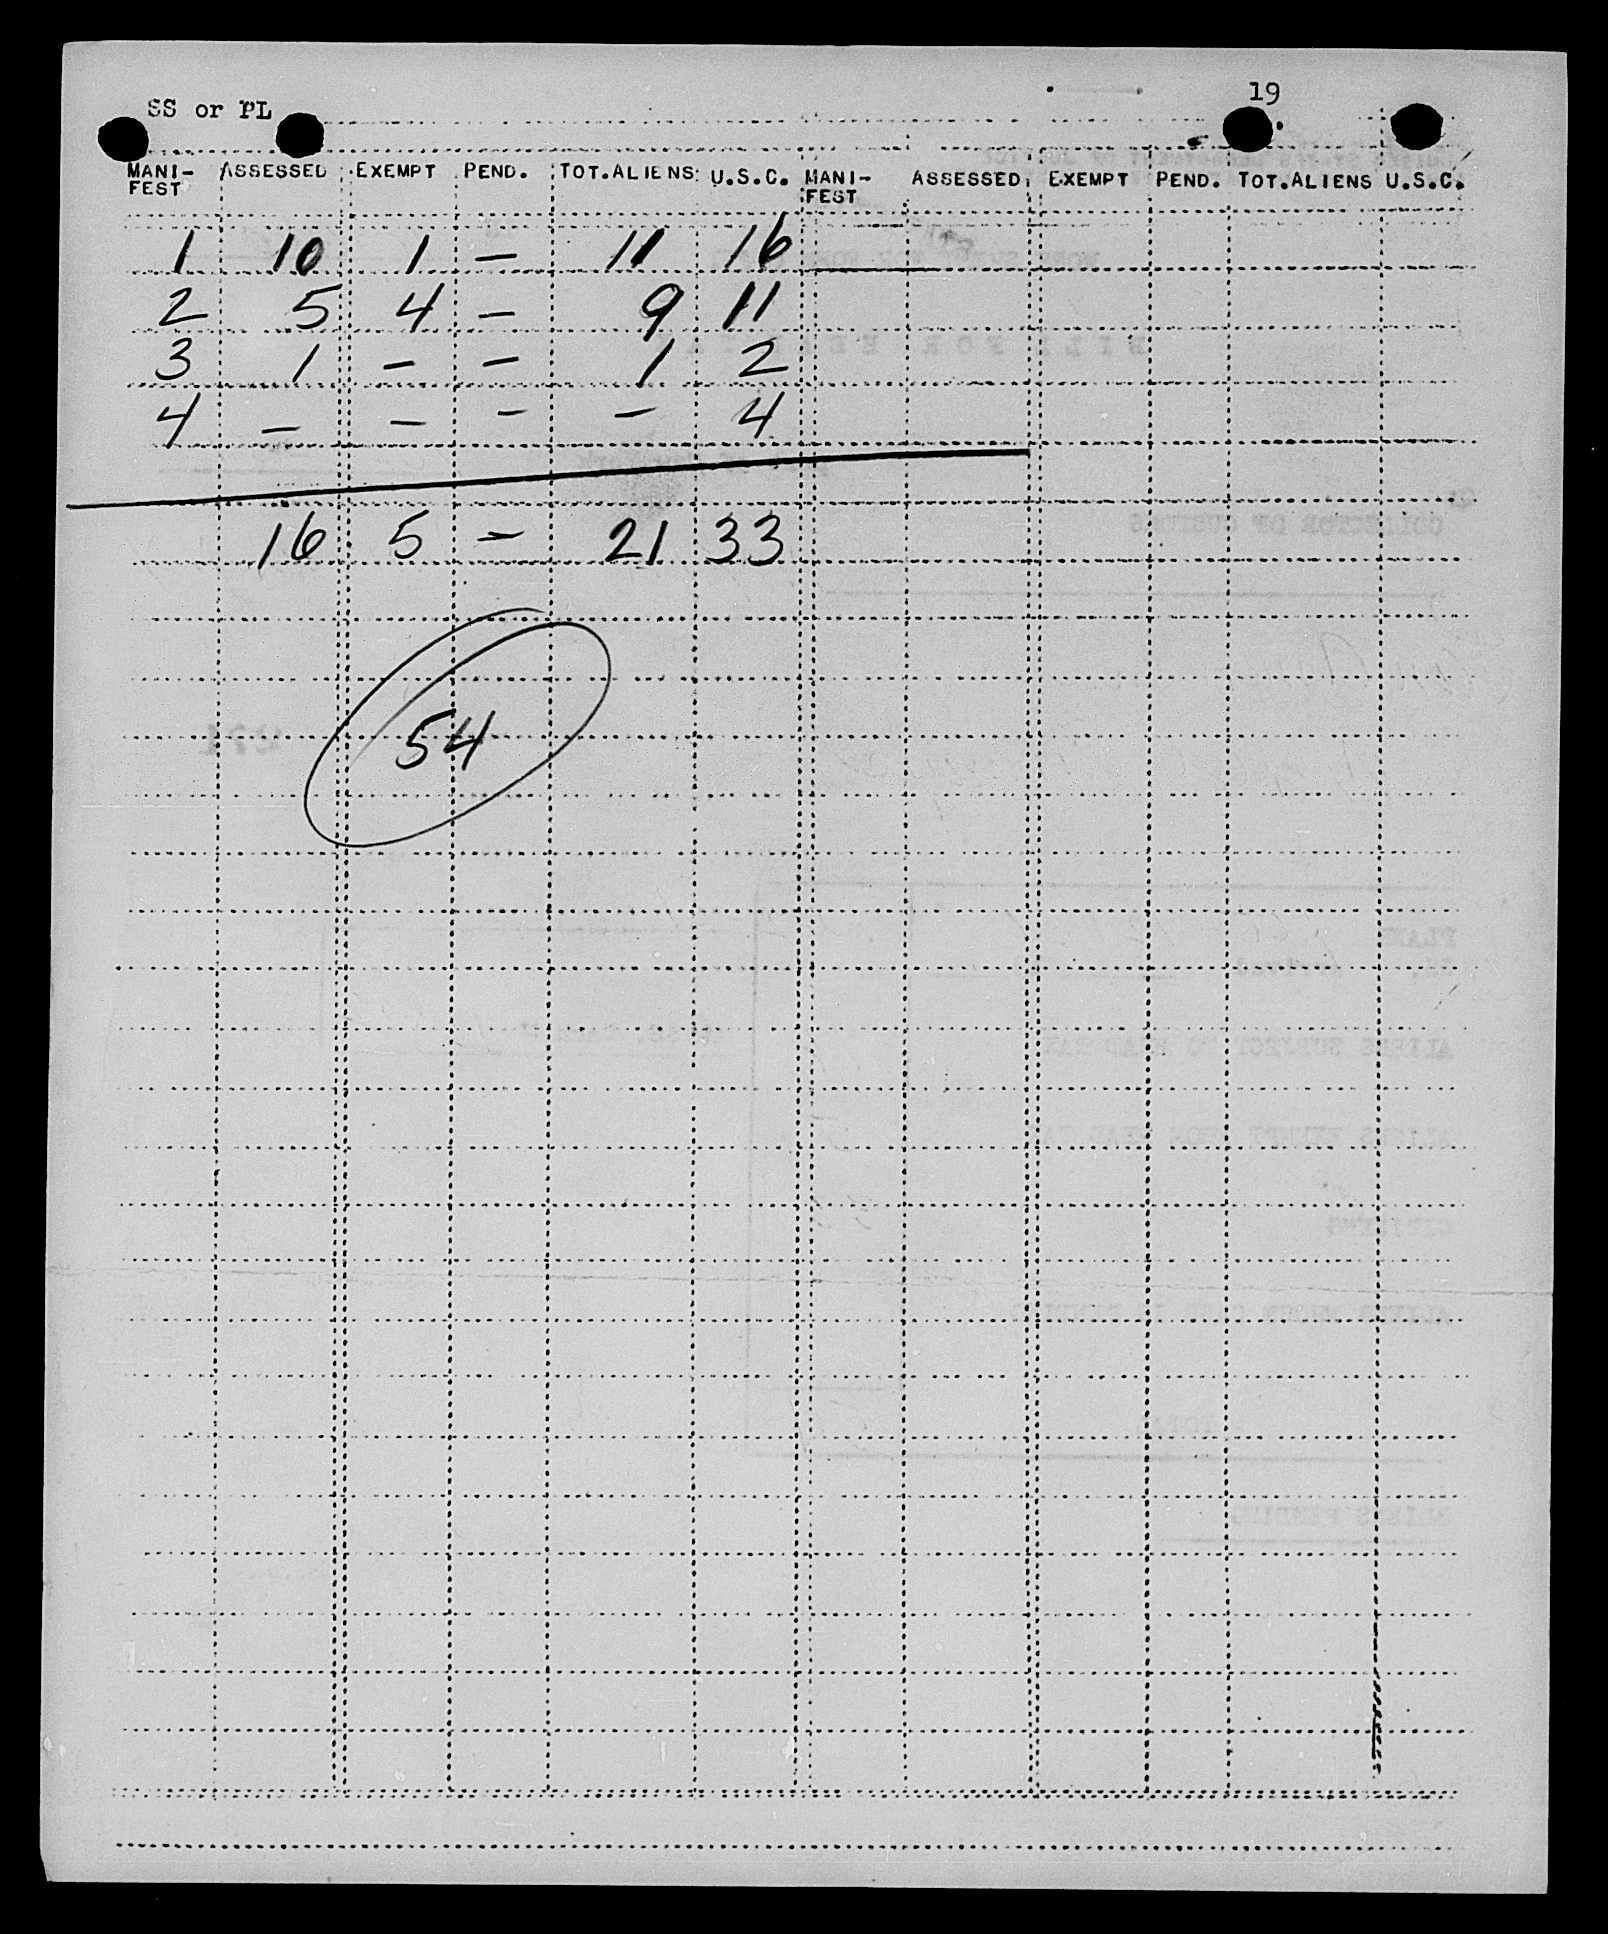 SS or PL 19
MANI-FEST ASSESSED EXEMPT PEND. TOT.ALIENS U.S.C. MANI-FEST ASSESSED EXEMPT PEND. TOT.ALIENS U.S.C.
1 10 1 — 11 16
2 5 4 — 9 11
3 1 — — 1 2
4 — — — — 4
16 5 — 21 33
54